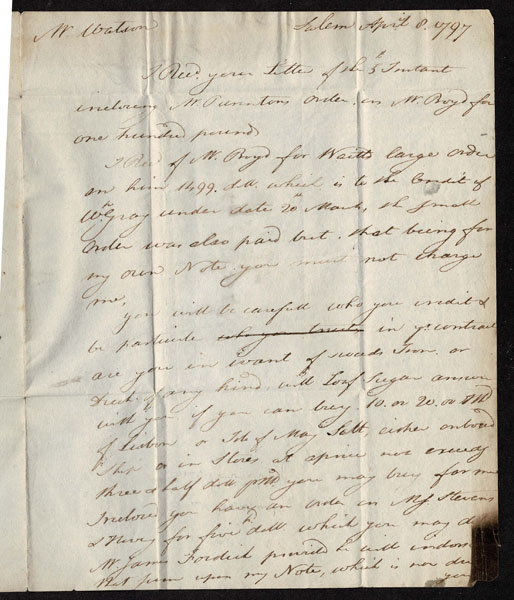 Mr Watson Salem April 8. 1797
I Recd. your Letter of the 5th Instant
inclosing Mr. Order, on Mr. Boyd for
one hundred pound
I Recd of Mr. Boyd for Waitts large order
on him 1499. doll. which is to the Credit of
Wm. Gray under date 20th March, the small
Order was also paid but, that being for
my own Note you must not charge
me,
you will be carefull who you credit &
be particulr who you trust in yr. contract
are you in want of Iron. or
of any kind, will Loaf Sugar answer
with you if you can buy 10. or 20. or
of Lisbon or Isle of May Salt, either onboard
Ship or in Stores at a price not exceedg
three & half doll you may buy for me
Inclosed you have an order on Mess Stevens
& for five doll which you may d
Mr. James provided he will indorse
that sum upon my Note, which is now due
you